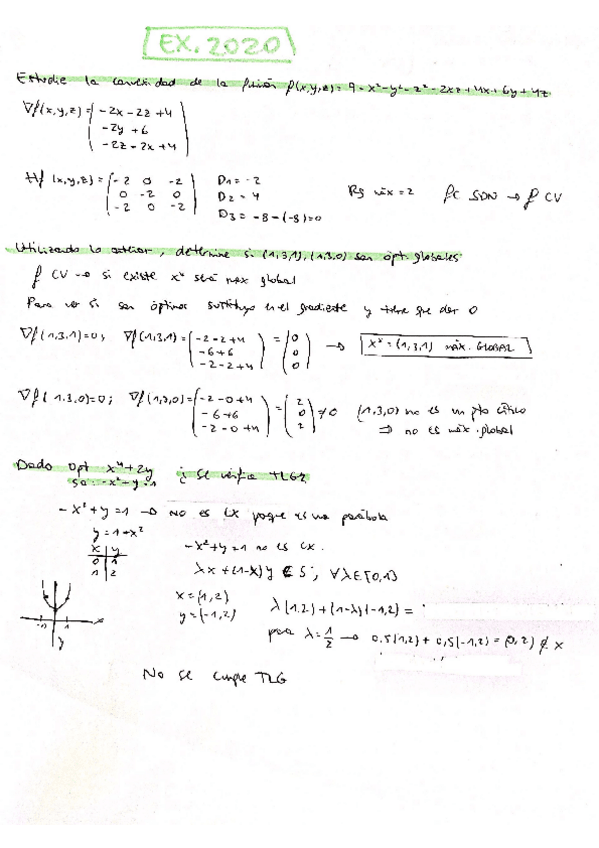 EX. 2020
Estudie la convexidad de la función f(x,y,z) = 9 - x² - y² - z² - 2xz + 4x + 6y + 4z
∇f(x,y,z) = (-2x - 2z + 4
-2y + 6
-2z - 2x + 4)
Hf(x,y,z) = (-2 0 -2 D1 = -2
0 -2 0 D2 = 4 Rg máx = 2 fC SDN → f CV
-2 0 -2) D3 = -8-(-8)=0
Utilizando lo anterior, determine si (1,3,1), (1,3,0) son ópt. globales
f CV → si existe x* será máx global
Para ver si son óptimos sustituyo en el gradiente y tiene que dar 0
∇f(1,3,1)=0; ∇f(1,3,1) = (-2-2+4 = (0 → x* = (1,3,1) MÁX. GLOBAL
-6+6 0
-2-2+4) 0)
∇f(1,3,0)=0; ∇f(1,3,0) = (-2-0+4 = (2 ≠0 (1,3,0) no es un pto crítico
-6+6 0 ⇒ no es máx. global
-2-0+4) 2)
Dado opt x⁴+2y ¿Se verifica TLG?
sa: -x²+y=1
-x²+y=1 → No es CX porque es una parábola
y=1+x²
x y -x²+y=1 no es CX.
0 1 λx+(1-λ)y ∈ S, ∀λ∈[0,1]
1 2
x=(1,2) λ(1,2)+(1-λ)(-1,2) =
y=(-1,2)
-1 1 para λ=1/2 → 0,5(1,2)+0,5(-1,2)=(0,2) ∉ x
y
No se cumple TLG